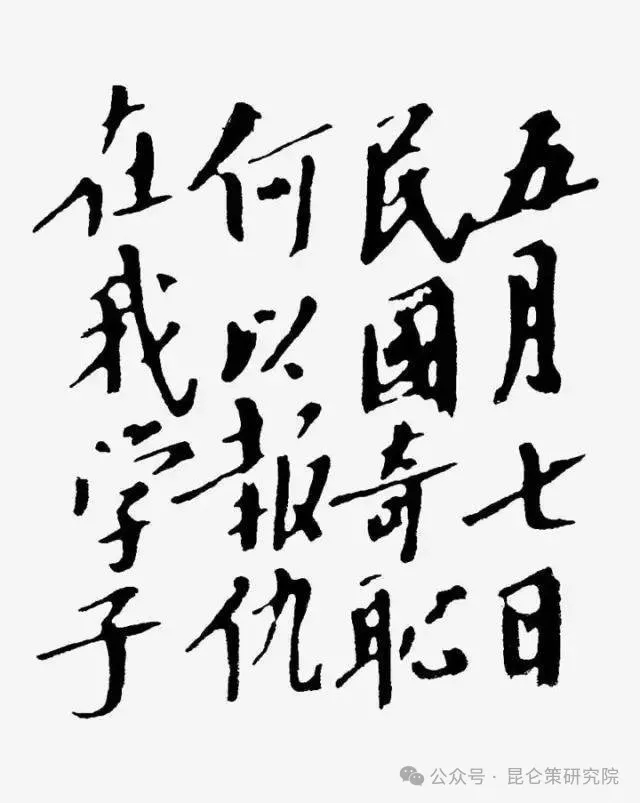 五月七日
民國奇恥
何以報仇
在我学子
公众号·昆仑策研究院